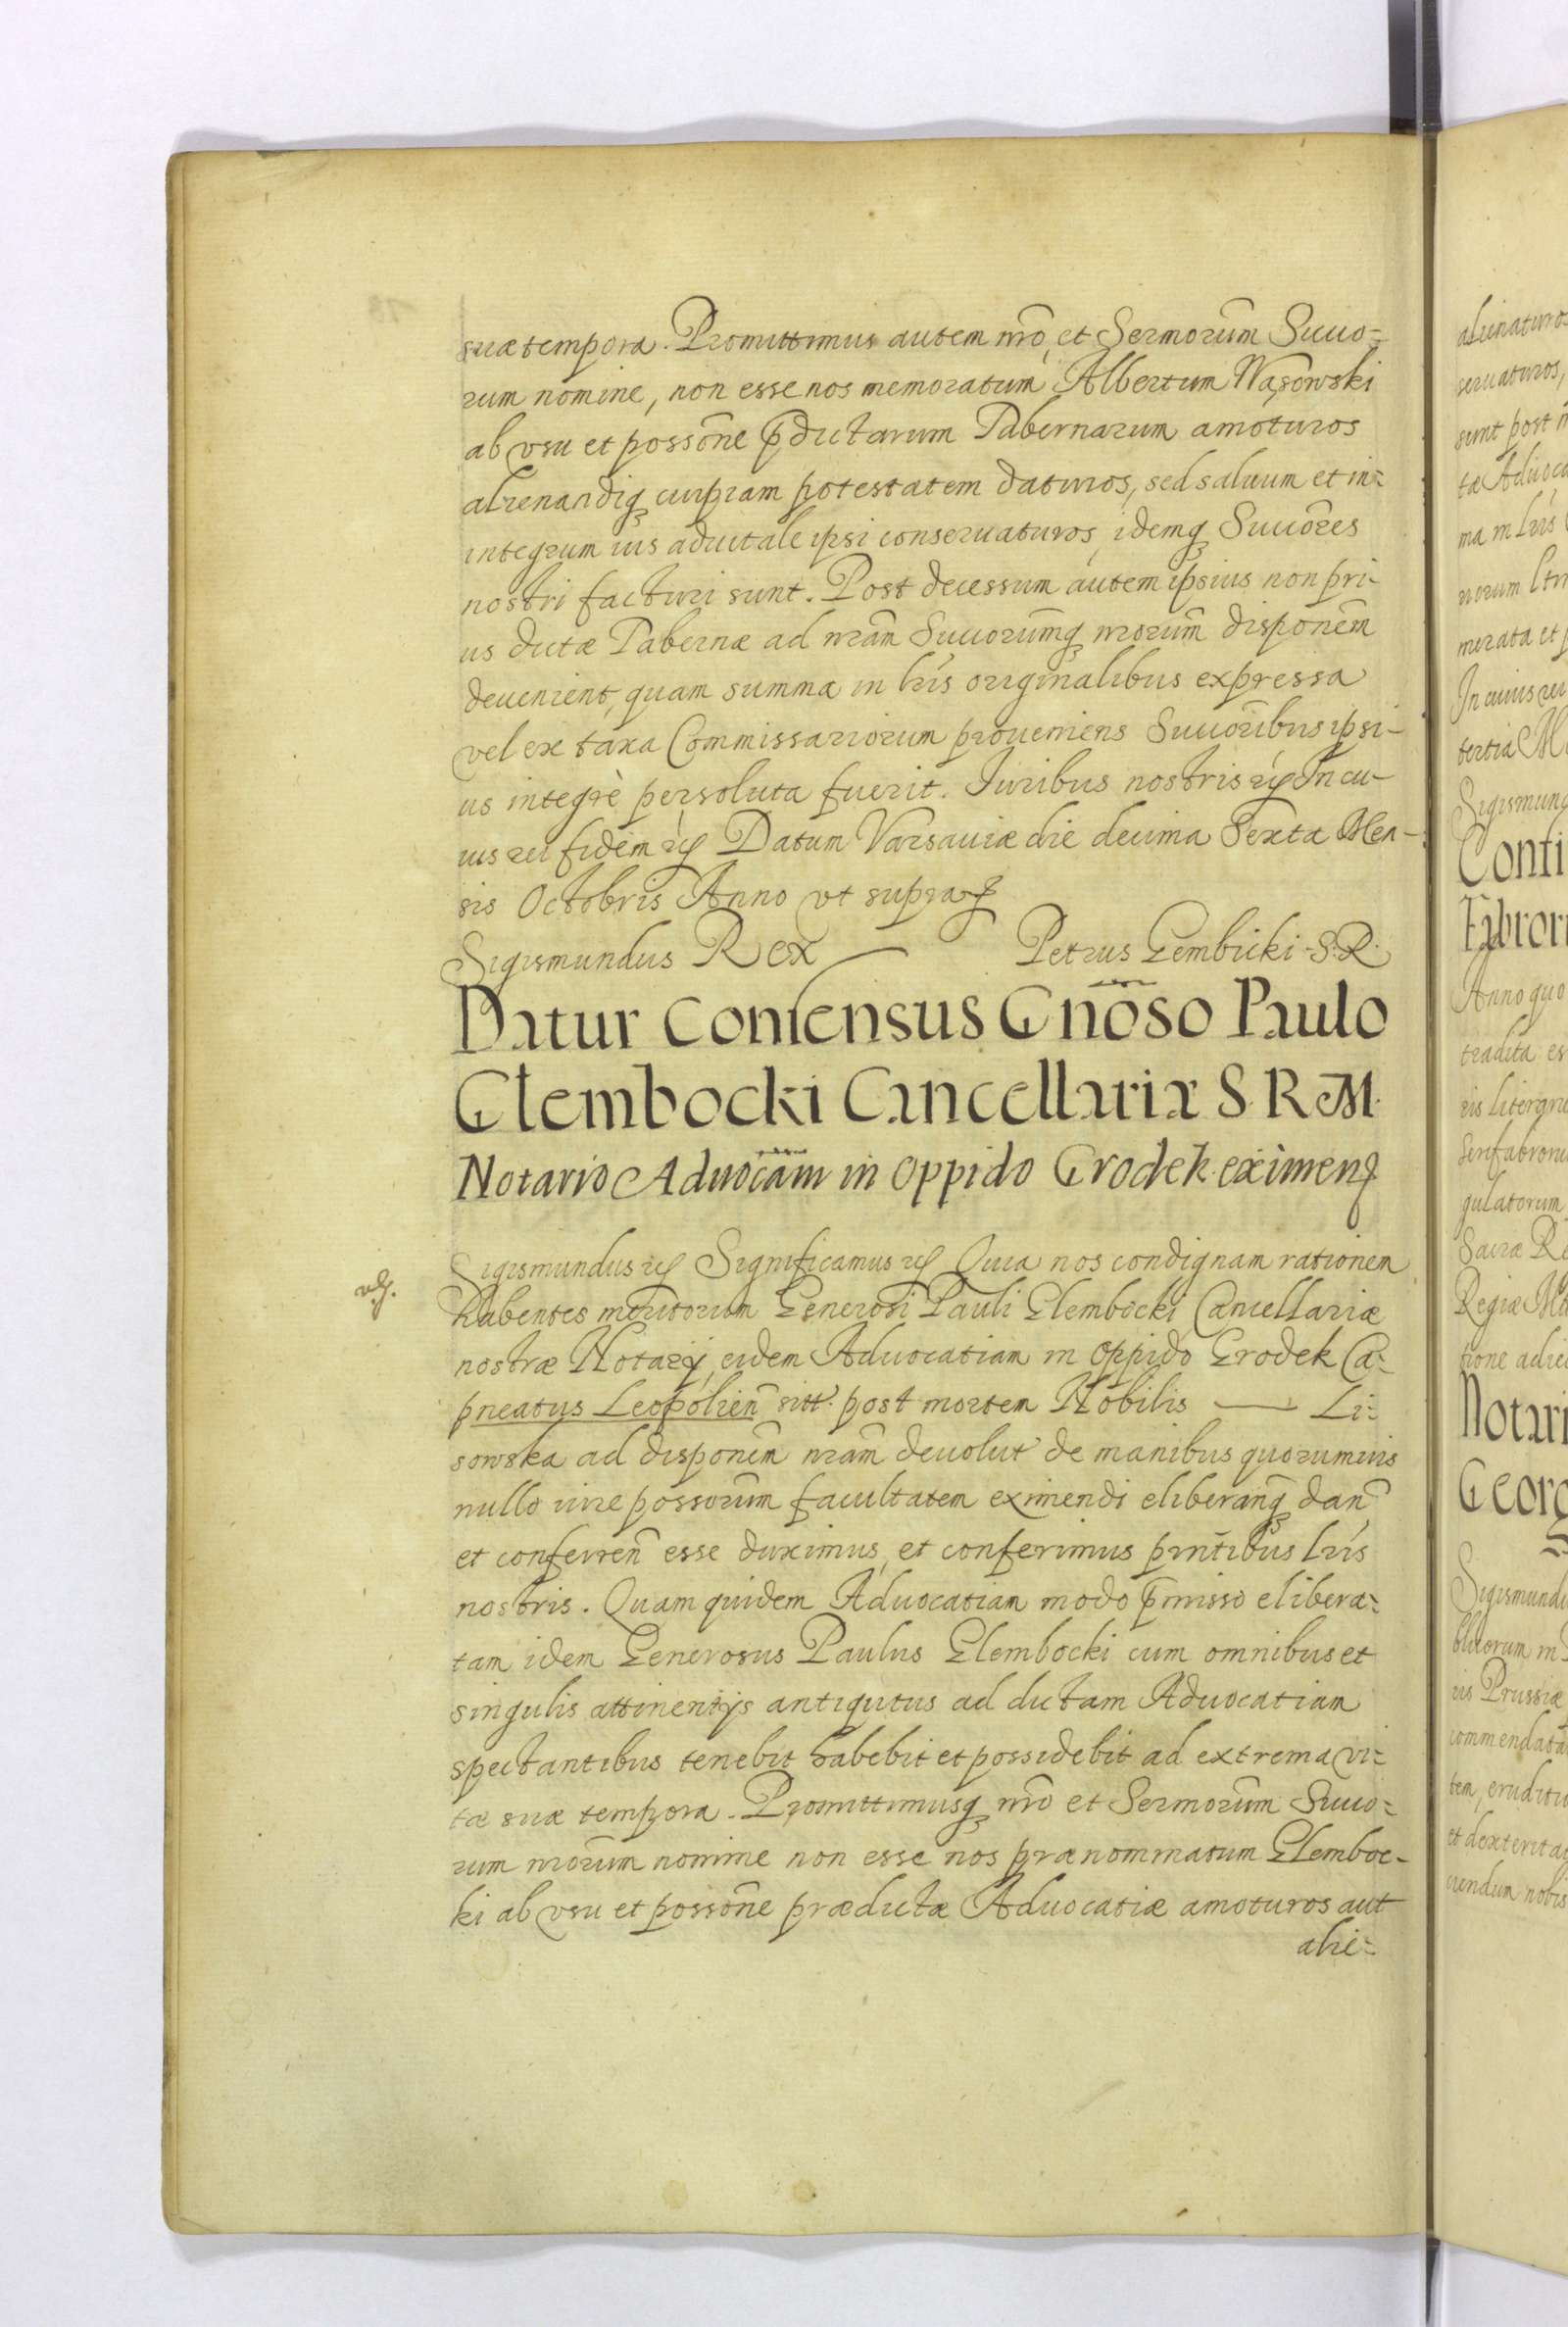 suæ tempora. Promittimus autem nrō, et Sermorum̄ Succo=
rum nomine, non esse nos memoratum Albertum Wąsowski
ab vsu et possōne p̄dictarum Tabernarum amoturos
alienandiq₃ cuipiam potestatem daturos, sed saluum et in=
integrum ius aduitale ipsi conseruaturos, idemq₃ Succōres
nostri facturi sunt. Post decessum autem ipsius non pri-
us dictæ Tabernæ ad nrām Succorum̄q₃ nrorum̄ disponēm
deuenient, quam summa in lrīs originalibus expressa
vel ex taxa Commissariorum proueniens Succorībus ipsi-
us integrè persoluta fuerit. Iuribus nostris etc In cu-
ius rei fidem etc Datum Varsauiæ die decima Sexta Men-
sis Octobris Anno vt supra
Sigismundus Rex — Petrus Gembicki S. R.
Datur Consensus Gnōso Paulo
Glembocki Cancellariæ S R M.
Notario Aduocām in Oppido Grodek eximen
Sigismundus etc Significamus etc Quia nos condignam rationem
habentes meritorum Generosi Pauli Glembocki Cancellariæ
nostræ Notarij, eidem Aduocatiam in Oppido Grodek Ca=
pneatus Leopolien̄ sitt. post mortem Nobilis — Li=
sowska ad disponēm nrām deuolut de manibus quorumuis
nullo iure possorum̄ facultatem eximendi eliberan̄q₃ dan̄
et conferren̄ esse duximus, et conferimus prntībus lrīs
nostris. Quam quidem Aduocatiam modo p̄misso elibera=
tam idem Generosus Paulus Glembocki cum omnibus et
singulis attinentijs antiqutus ad dictam Aduocatiam
spectantibus tenebit habebit et possidebit ad extrema vi=
tæ suæ tempora. Promittimusq₃ nrō et Sermorum̄ Succo=
rum nrorum̄ nomine non esse nos prænominatum Glemboc-
ki ab vsu et possōne prædictæ Aduocatiæ amoturos aut
alie=